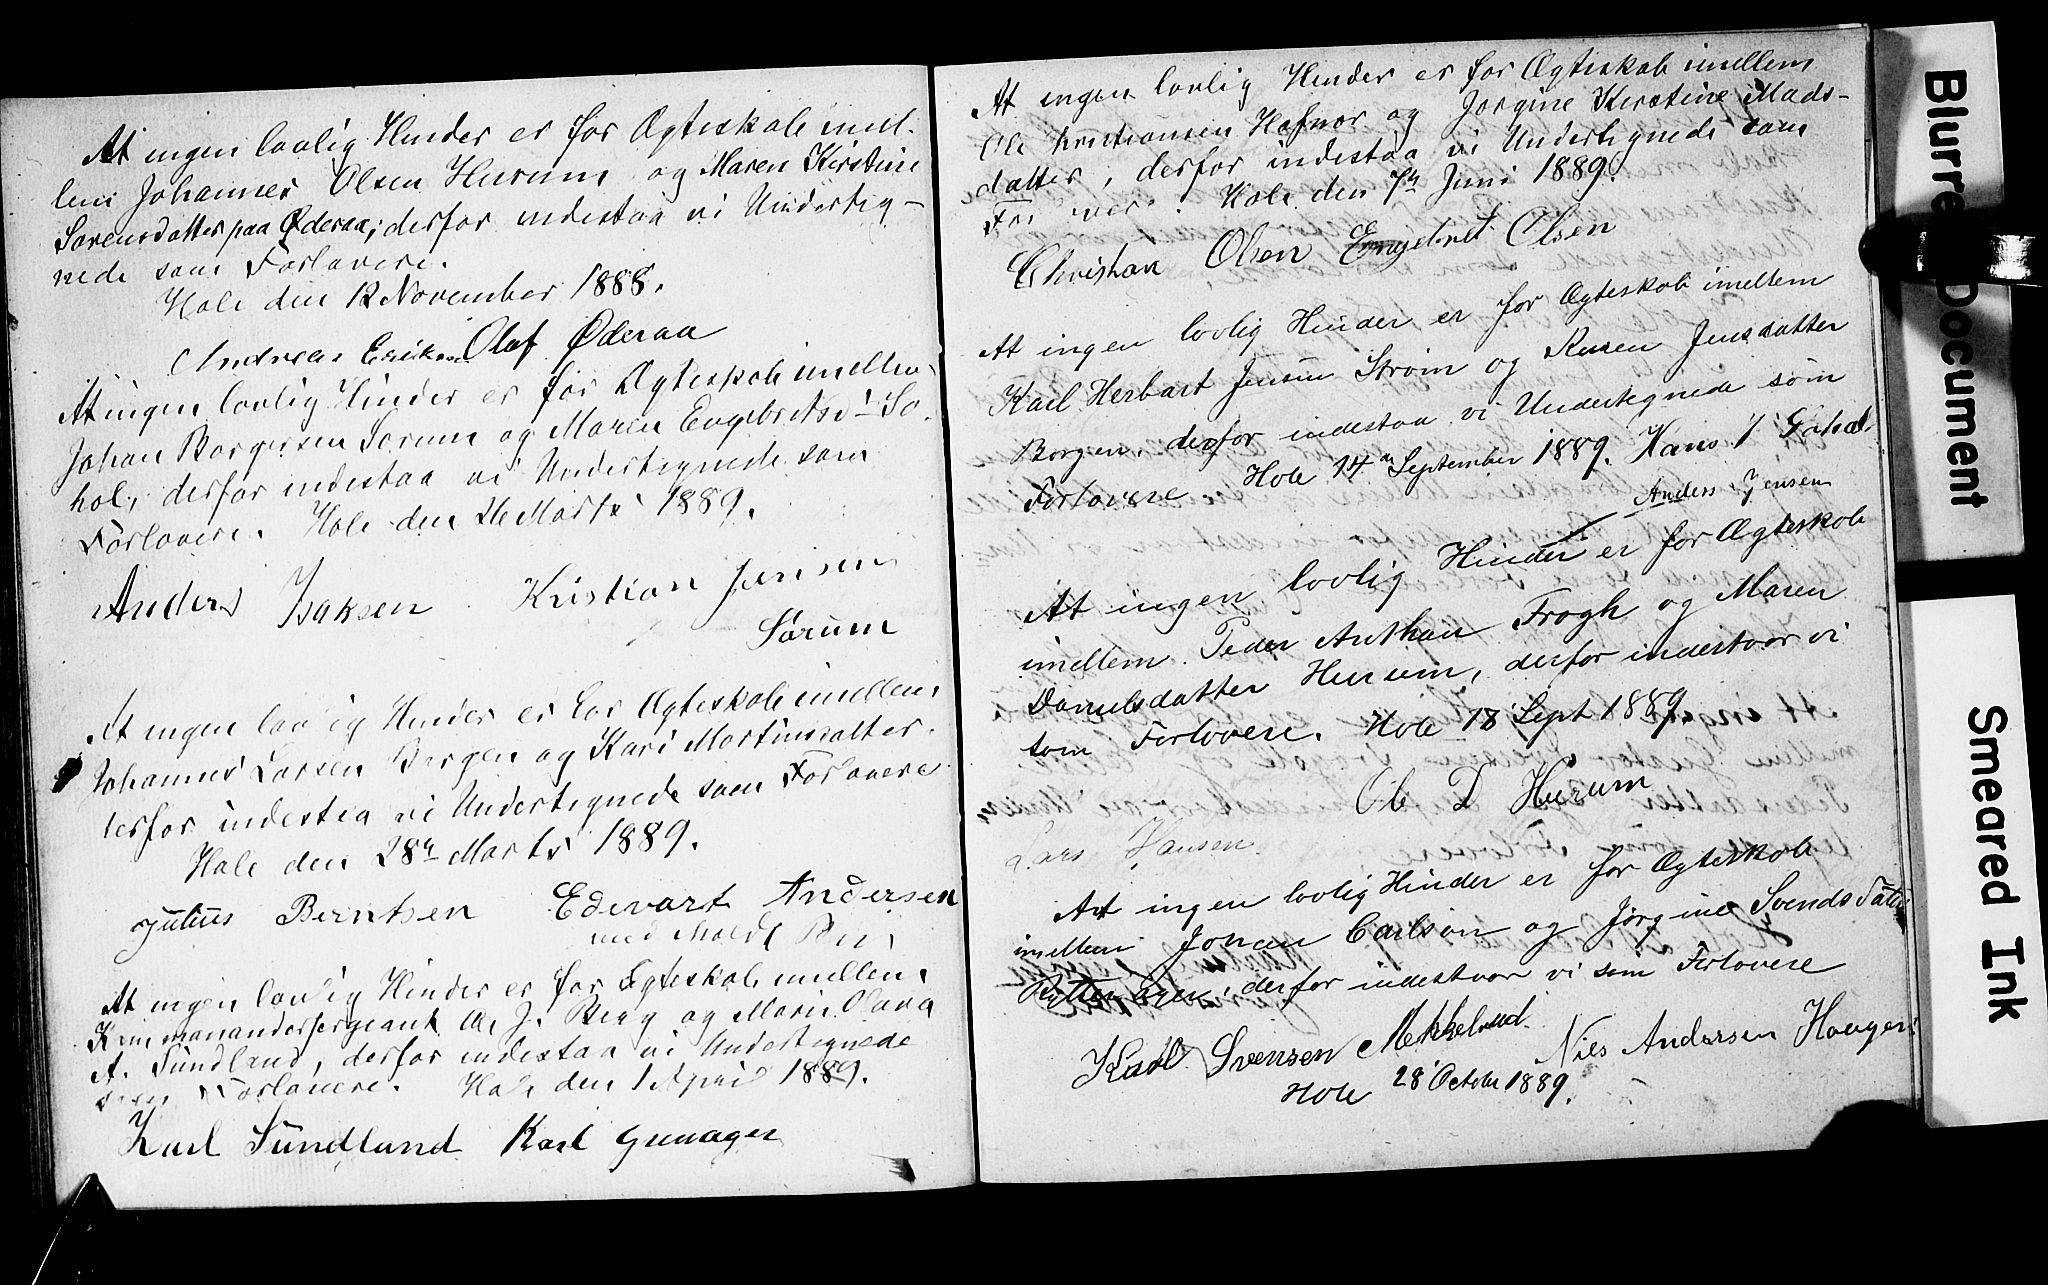 At ingen lovlig Hinder er for Ægteskab imel-
lem Johannes Olsen Hurum og Maren Kirstine
Sørensdatter paa Øderaa, derfor indestaa vi Underteg-
nede som Forlovere.
Hole den 12 November 1888.
Andreas Eriksen Olaf Øderaa
At ingen lovlig Hinder er for Ægteskab imellem
Johan Borgersen Sørum og Maren Engebritsd. So-
hol, derfor indestaa vi Undertegnede som
Forlovere. Hole den 26 Marts 1889.
Anders Isaksen Kristian Jensen
Sørum
At ingen lovlig Hinder er for Ægteskab imellem
Johannes Larsen Borgen og Kari Martinsdatter
derfor indestaa vi Undertegnede som Forlovere
Hole den 28n Marts 1889.
Julius Berntsen Edevart Andersen
med Pen
At ingen lovlig Hinder er for Ægteskab imellem
O. J. Berg og Marie Olava
A. Sundland, derfor indestaa vi Undertegnede
som Forlovere. Hole den 1 April 1889.
Karl Sundland Karl Grenager
At ingen lovlig Hinder er for Ægteskab imellem
Ole Kristiansen Hafnor og Jørgine Kirstine Mads-
datter, derfor indestaa vi Undertegnede som
Forlovere. Hole den 7n Juni 1889.
Christian Olsen Engebret Olsen
At ingen lovlig Hinder er for Ægteskab imellem
Karl Herbart Jensen Strøm og Karen Jensdatter
Borgen, derfor indestaa vi Undertegnede som
Forlovere Hole 14n September 1889. Hans
Anders Jensen
At ingen lovlig Hinder er for Ægteskab
imellem Peder Anthon Frogh og Maren
Danielsdatter Hurum, derfor indestaar vi
som Forlovere. Hole 18 Sept 1889.
Ole D Hurum
Lars Hansen
At ingen lovlig Hinder er for Ægteskab
imellem Johan Carlson og Jørgine Svendsdatter
Rytteraren, derfor indestaar vi som Forlovere
Karl Svensen Mekkelrud. Nils Andersen Haugen
Hole 28 October 1889.
Blurred Document
Smeared Ink